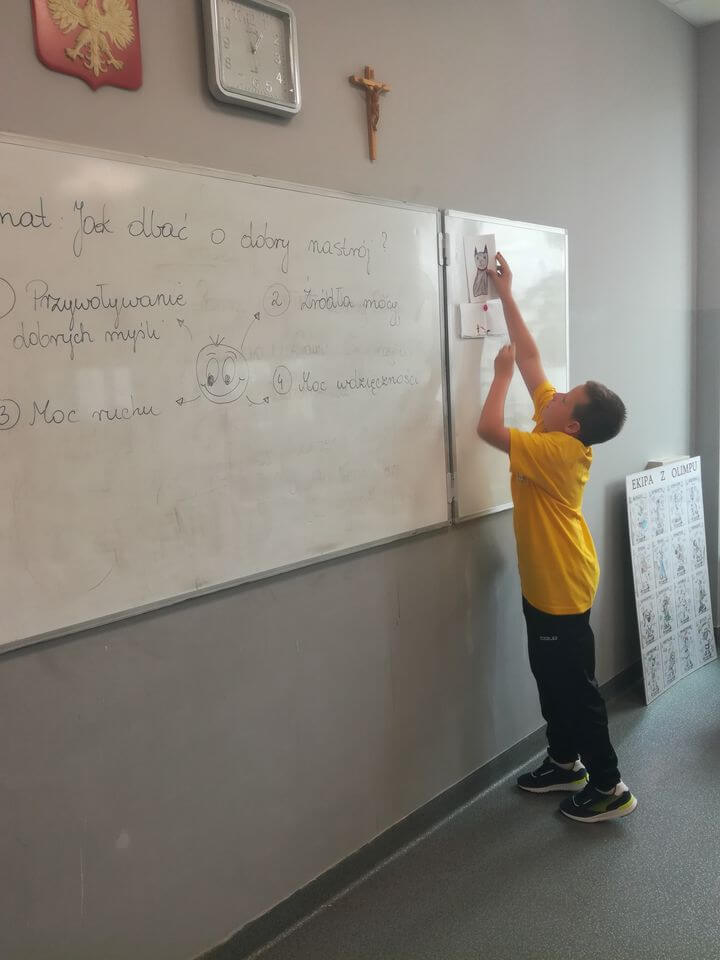 mat: Jak dbać o dobry nastrój?
Przywoływanie
dobrych myśli
2 Źródła mocy
3 Moc ruchu
4 Moc wdzięczności
EKIPA Z OLIMPU